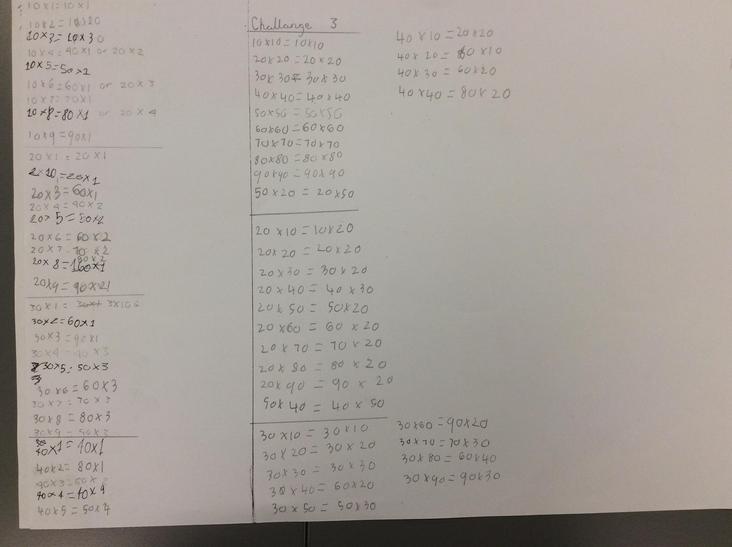 10x1=10x1
10x2=1020
10x3=10x30
10x4=40x1 or 20x2
10x5=50x2
10x6=60x1 or 20x3
10x7=70x1
10x8=80x1 or 20x4
10x9=90x1
20x1=20x1
20x3=60x1
20x4=40x2
20x6=60x2
20x7=70x2
20x9=90x21
30x2=60x1
30x3=90x1
30x4=40x3
30x5=50x3
30x6=60x3
30x7=70x3
30x8=80x3
30x9=90x3
40x2=80x1
40x5=50x4
Challange 3
10x10=10x10
20x20=20x20
30x30=30x30
40x40=40x40
50x50=50x50
60x60=60x60
70x70=70x70
80x80=80x80
90x90=90x90
50x20=20x50
20x10=10x20
20x20=20x20
20x30=30x20
20x40=40x30
20x50=50x20
20x60=60x20
20x70=70x20
20x80=80x20
20x90=90x20
50x40=40x50
30x10=30x10
30x20=30x20
30x30=30x30
30x40=60x20
30x50=50x30
40x10=20x20
40x20=80x10
40x30=60x20
40x40=80x20
30x60=90x20
30x70=70x30
30x80=60x40
30x90=90x30